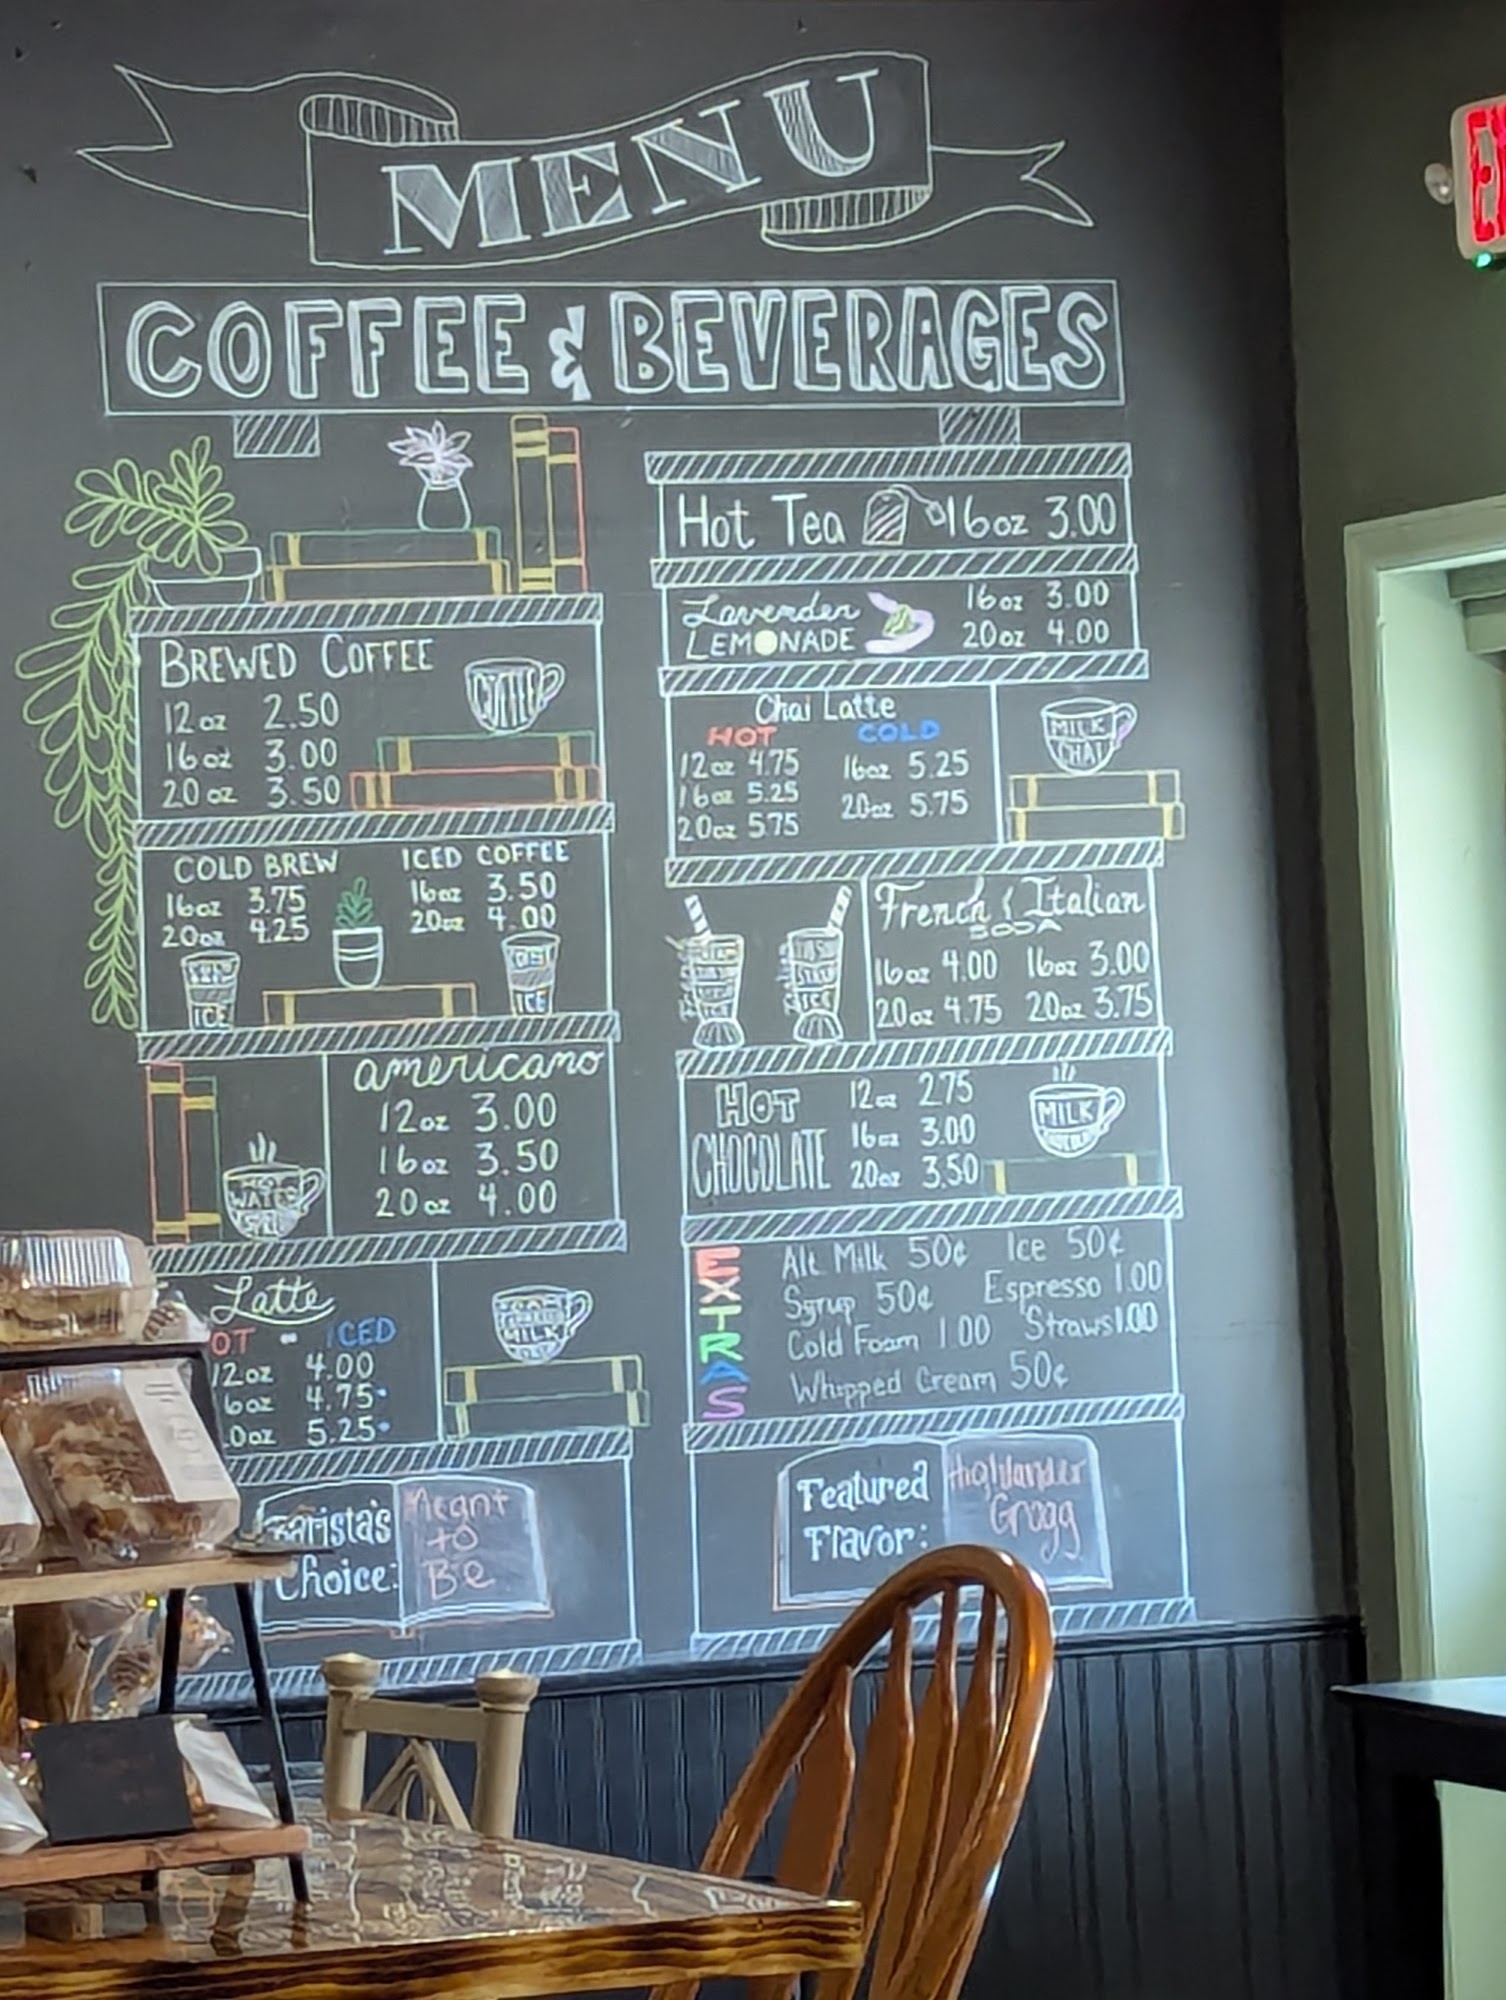 MENU
COFFEE & BEVERAGES
BREWED COFFEE
12oz 2.50
16oz 3.00
20oz 3.50
COFFEE
COLD BREW
16oz 3.75
20oz 4.25
ICE
ICED COFFEE
16oz 3.50
20oz 4.00
ICE
americano
12oz 3.00
16oz 3.50
20oz 4.00
WATER
Latte
OT - ICED
12oz 4.00
6oz 4.75
0oz 5.25
ESPRESSO
MILK
Barista's
Choice:
Meant
to
Be
Hot Tea 16oz 3.00
Lavender
LEMONADE
16oz 3.00
20oz 4.00
Chai Latte
HOT
12oz 4.75
16oz 5.25
20oz 5.75
COLD
16oz 5.25
20oz 5.75
MILK
CHAI
French & Italian
SODA
16oz 4.00 16oz 3.00
20oz 4.75 20oz 3.75
ICE
HOT
CHOCOLATE
12oz 2.75
16oz 3.00
20oz 3.50
MILK
EXTRAS
Alt Milk 50¢ Ice 50¢
Syrup 50¢ Espresso 1.00
Cold Foam 1.00 Straws 1.00
Whipped Cream 50¢
Featured
Flavor:
Highlander
Grogg
EX